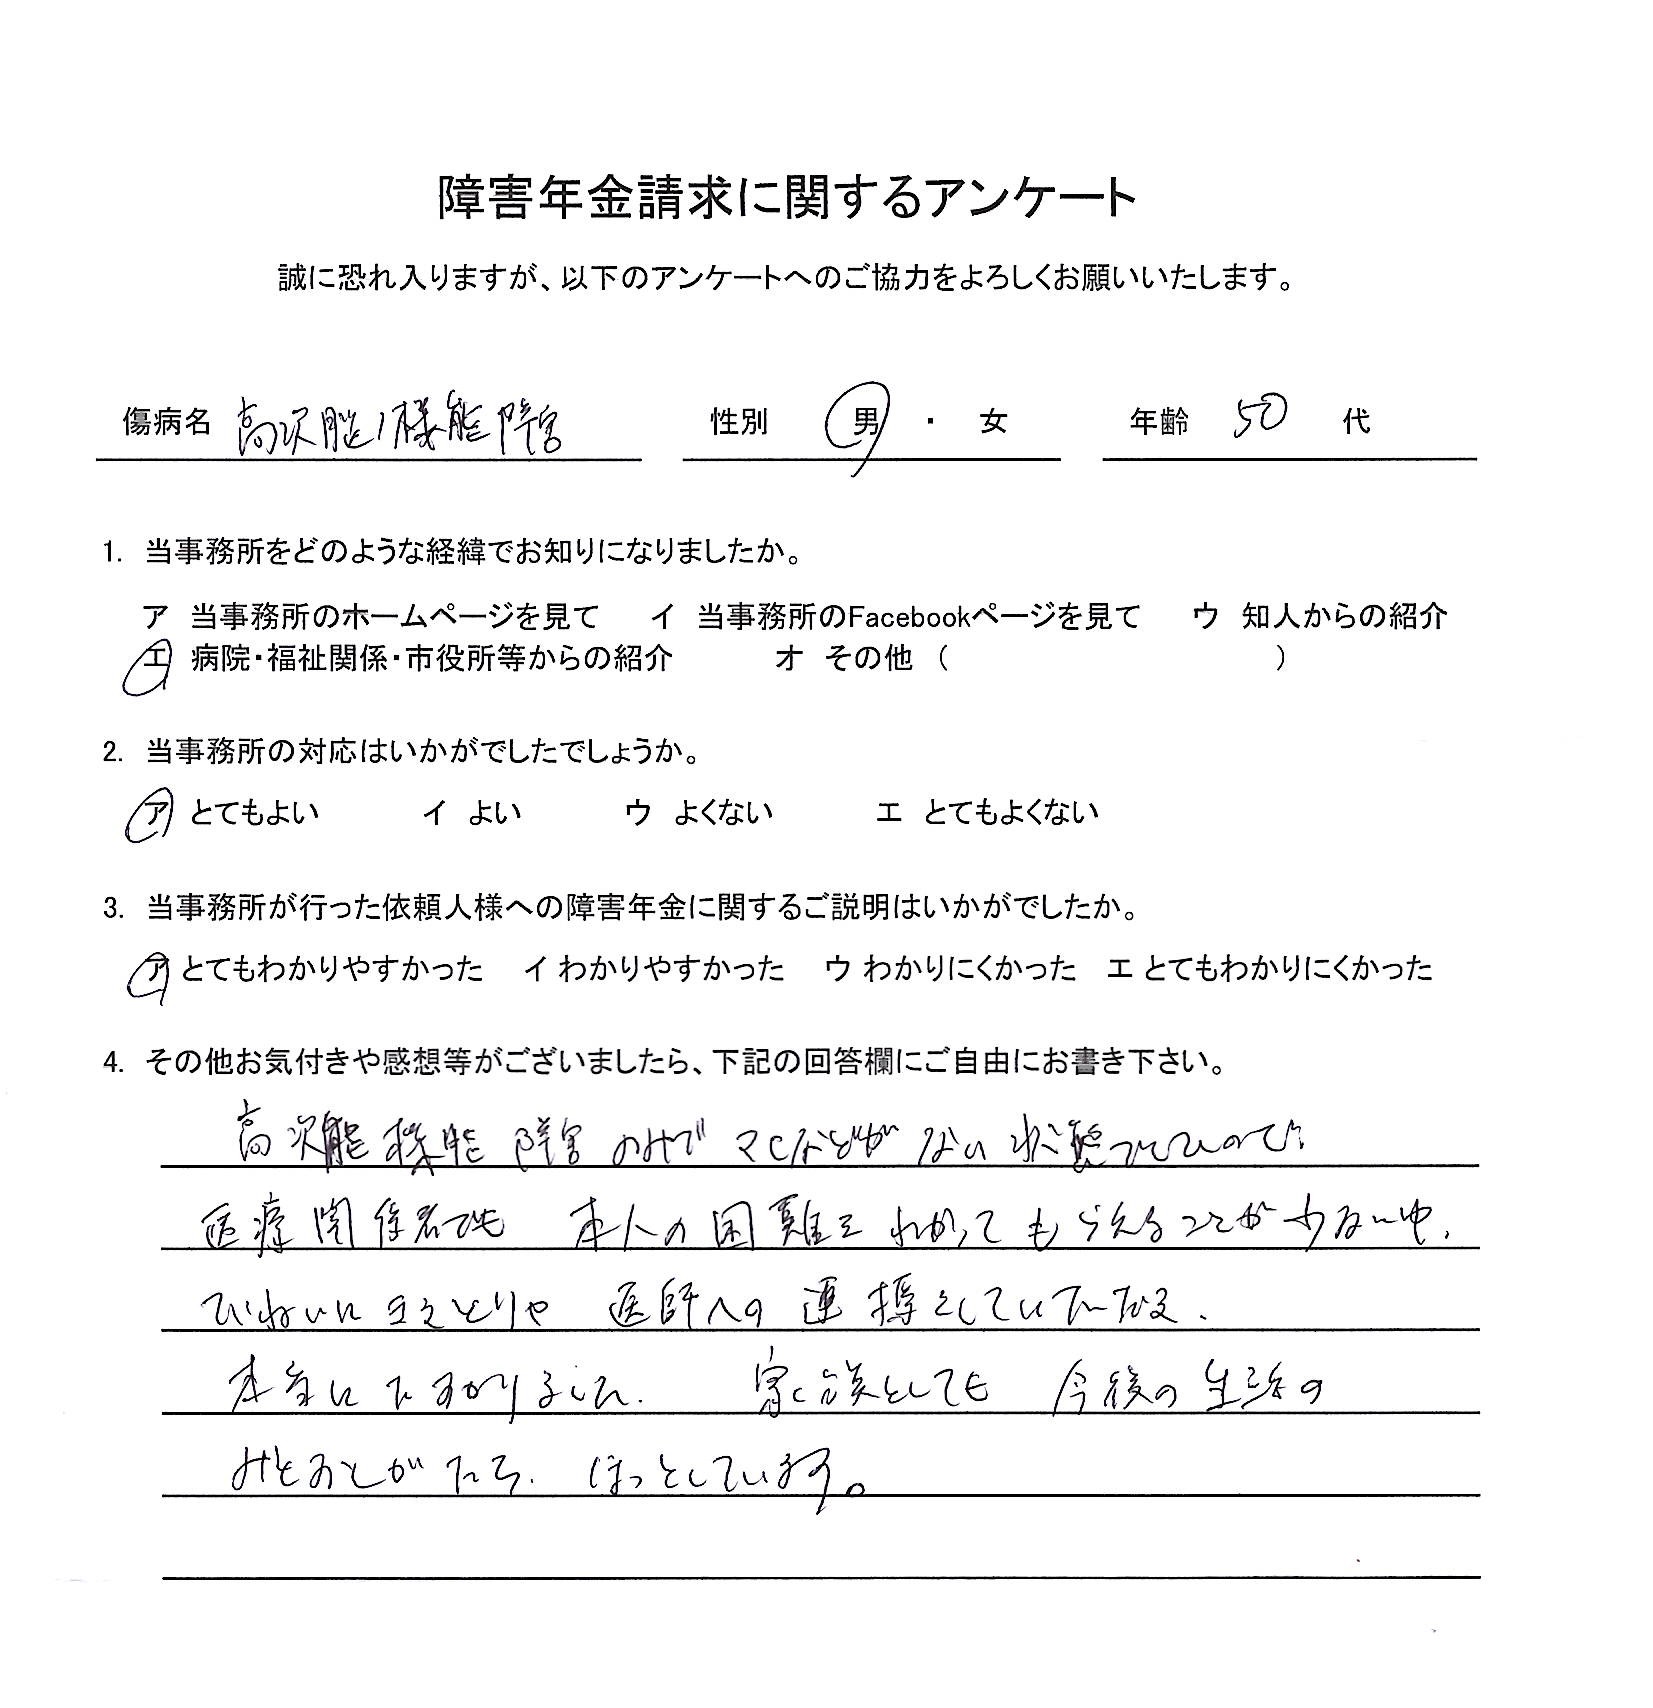 障害年金請求に関するアンケート
誠に恐れ入りますが、以下のアンケートへのご協力をよろしくお願いいたします。
傷病名 高次脳機能障害 性別 男 ・ 女 年齢 50 代
1. 当事務所をどのような経緯でお知りになりましたか。
ア 当事務所のホームページを見て イ 当事務所のFacebookページを見て ウ 知人からの紹介
エ 病院・福祉関係・市役所等からの紹介 オ その他 ( )
2. 当事務所の対応はいかがでしたでしょうか。
ア とてもよい イ よい ウ よくない エ とてもよくない
3. 当事務所が行った依頼人様への障害年金に関するご説明はいかがでしたか。
ア とてもわかりやすかった イ わかりやすかった ウ わかりにくかった エ とてもわかりにくかった
4. その他お気付きや感想等がございましたら、下記の回答欄にご自由にお書き下さい。
高次脳機能障害のみで マヒなどがない状態
医療関係者でも 本人の困難をわかってもらえることが少ない中、
ていねいに ききとりや 医師への連携をしていただき、
本当に たすかりました。 家族としても 今後の生活の
みとおしがたち、ほっとしています。